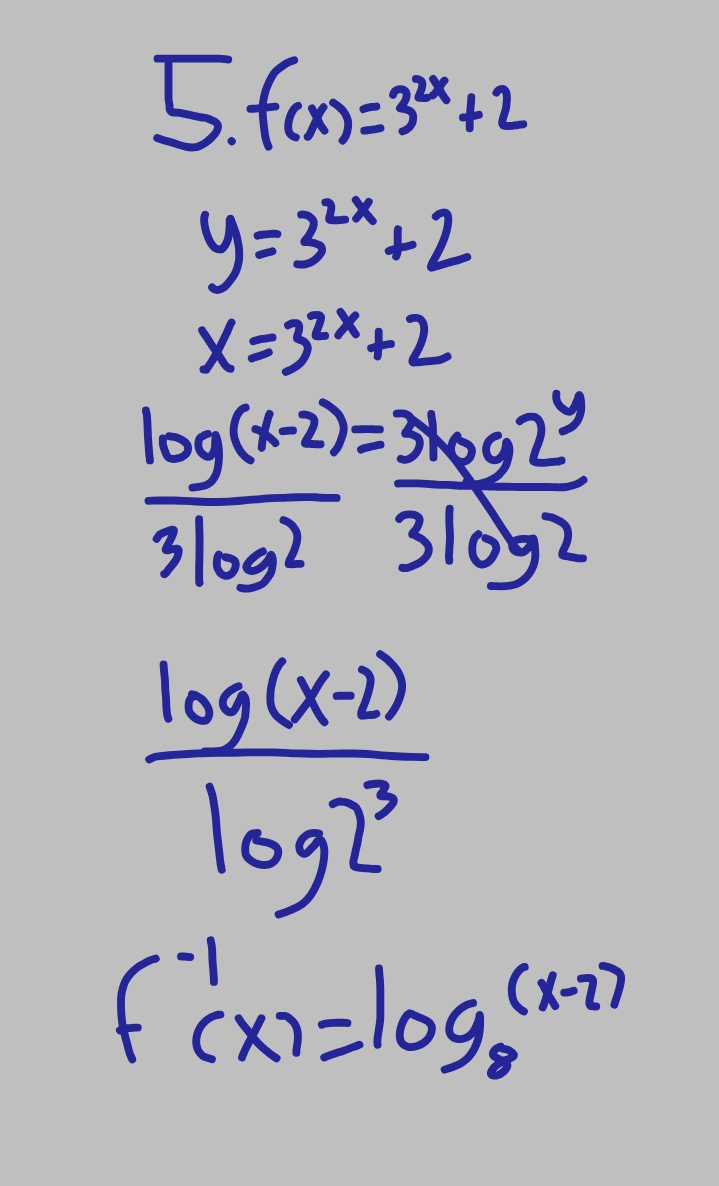 5. f(x)=3^{2x}+2
y=3^{2x}+2
x=3^{2x}+2
log(x-2)=3log2^y
3log2 3log2
log(x-2)
log2^3
f^{-1}(x)=log_8^{(x-2)}